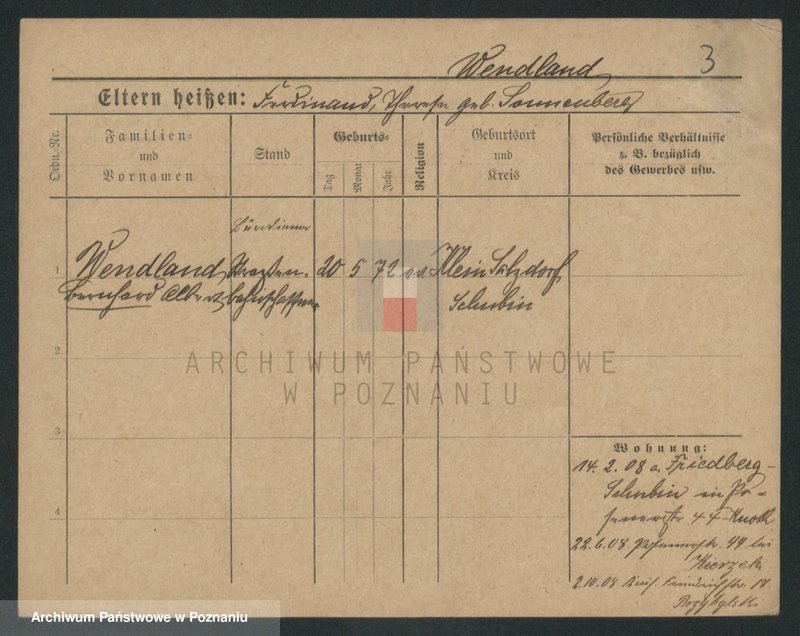 Wendland
3
Eltern heißen: Ferdinand, Therese geb. Sonnenberg
Ordn.-Nr.
Familien- und Vornamen
Stand
Geburts-
Tag
Monat
Jahr
Religion
Geburtsort und Kreis
Persönliche Verhältnisse
z. B. bezüglich
des Gewerbes usw.
Bürodiener
1
Wendland, Straßen- 20 5 72 ev. Klein Salzdorf,
Bernhard Albert bahnschaffner Schubin
2
3
4
ARCHIWUM PAŃSTWOWE
W POZNANIU
Wohnung:
14. 2. 08 a. Friedberg-
Schubin in Po-
senerstr. 44
22.6.08. Posenerstr. 44 bei
2.10.08
Archiwum Państwowe w Poznaniu